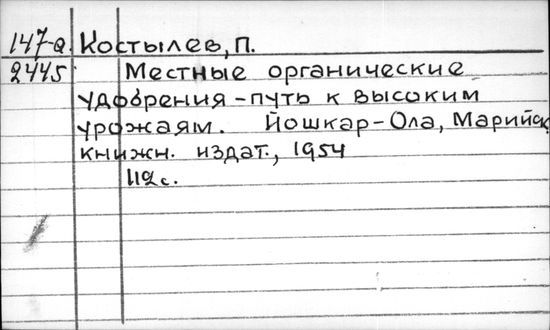 147-а. Костылев, П.
2445 Местные органические
удобрения - путь к высоким
урожаям. Йошкар-Ола, Марийск.
книжн. издат., 1954
112 с.